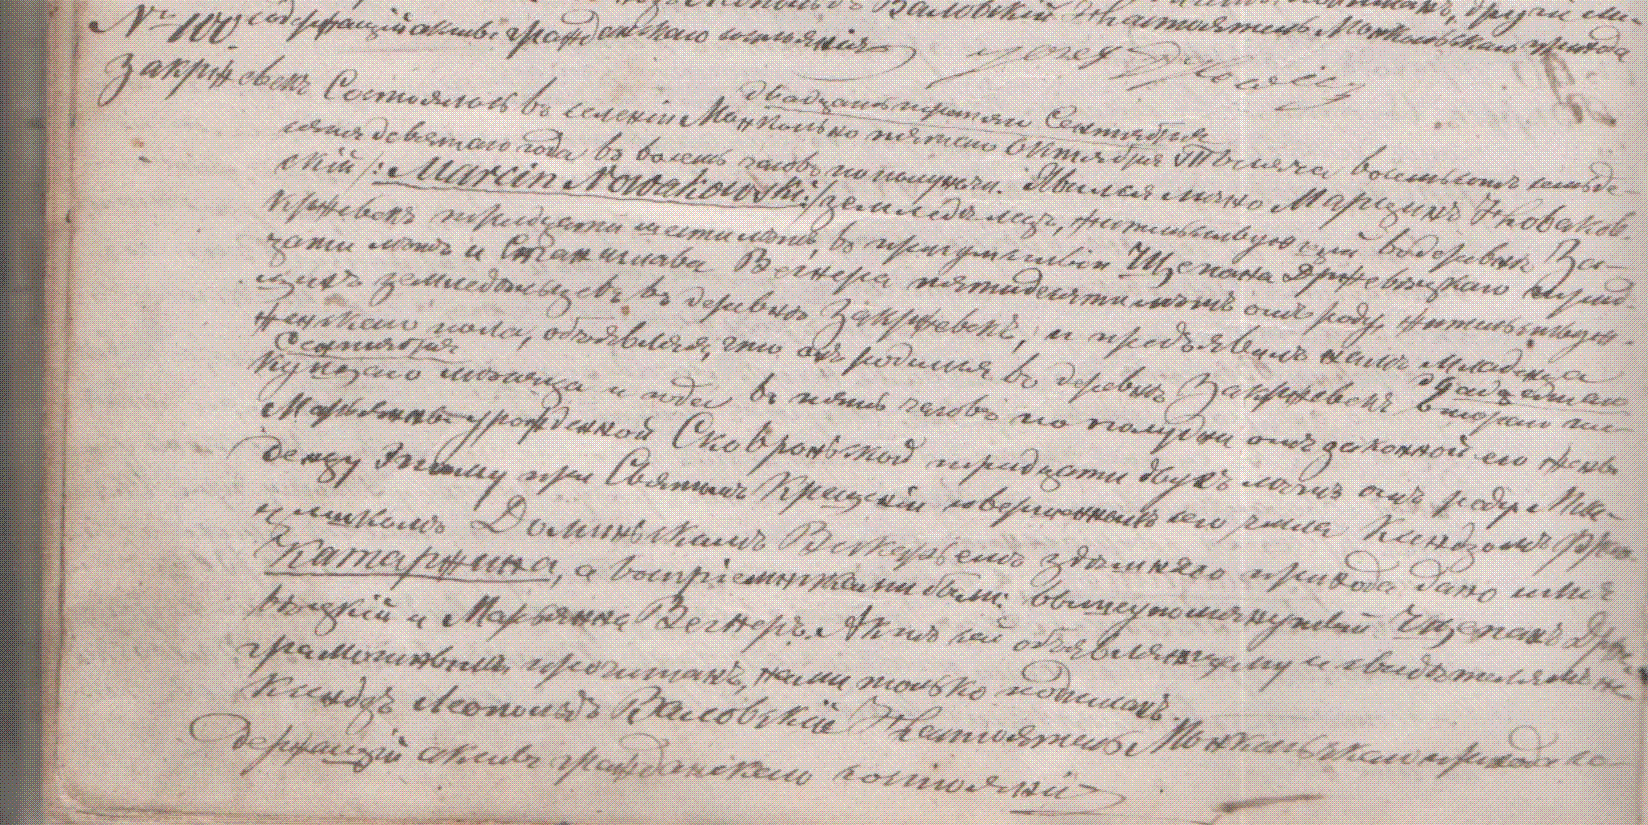 Валовскій Настоятель Монкольскаго прихода
№ 100 содержащій акты гражданскаго состоянія
Закржевекъ Состоялось въ селеніи Монкольно двадцать третьяго Сентября пятаго Октября Тысяча восемьсотъ семьде-
сятъ девятаго года въ восемь часовъ по полудни. Явился лично Марцинъ Новаков-
скій /: Marcin Nowakowski :/ земледѣлецъ, жительствующій въ деревнѣ За-
кржевекъ тридцати шести лѣтъ, въ присутствіи Щепана Држевецкаго трид-
цати лѣтъ и Станислава Вегнера пятидесяти лѣтъ отъ роду, жительствую-
щихъ земледѣльцевъ въ деревнѣ Закржевекъ, и предъявилъ намъ младенца
женскаго пола, объявляя, что онъ родился въ деревнѣ Закржевекъ двадцатаго
Сентября втораго те-
кущаго мѣсяца и года въ пять часовъ по полудни отъ законной его жены
Марьянны урожденной Сковронской тридцати двухъ лѣтъ отъ роду. Мла-
денцу этому при Святомъ Крещеніи совершенномъ сего числа Ксендзомъ Фран-
цишкомъ Доминскимъ Викарьемъ здѣшняго прихода дано имя
Катаржина, а воспріемниками были: вышеупомянутый Щепанъ Држе-
вецкій и Марьянна Вегнеръ. Актъ сей объявляющему и свидѣтелямъ не-
грамотнымъ прочитанъ, нами только подписанъ.
Ксендзъ Леопольдъ Валовскій Настоятель Монкольскаго прихода со-
держащій акты гражданскаго состоянія